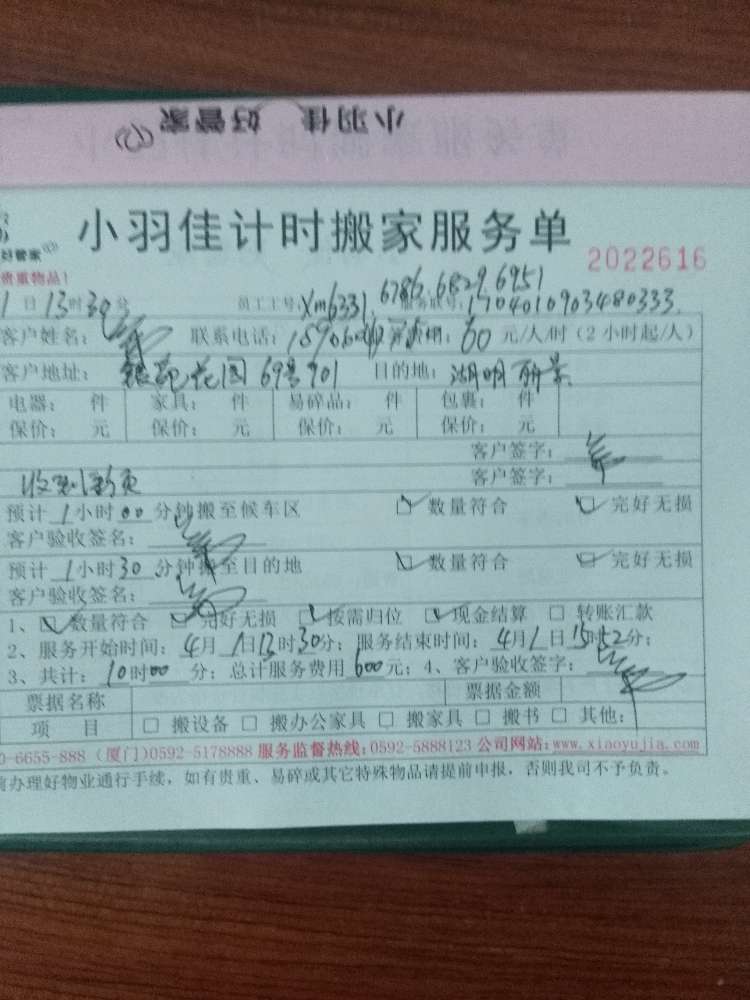 小羽佳 好管家
小羽佳计时搬家服务单
好管家
2022616
贵重物品!
6786.6829.6951
1日13时30分 员工工号:Xm6331. 服务联号:1704010903480333.
客户姓名: 联系电话: 60元/人/时(2小时起/人)
客户地址: 花园69号901 目的地: 湖明丽景
电器: 件 家具: 件 易碎品: 件 包裹: 件
保价: 元 保价: 元 保价: 元 保价: 元
客户签字:
客户签字:
收到
预计1小时00分钟搬至候车区 数量符合 完好无损
客户验收签名:
预计1小时30分钟搬至目的地 数量符合 完好无损
客户验收签名:
1、数量符合 完好无损 按需归位 现金结算 转账汇款
2、服务开始时间:4月1日13时30分;服务结束时间:4月1日15时52分;
3、共计:10时00分;总计服务费用600元;4、客户验收签字:
票据名称 票据金额
项 目 搬设备 搬办公家具 搬家具 搬书 其他:
0-6655-888 (厦门)0592-5178888 服务监督热线:0592-5888123 公司网站:www.xiaoyujia.com
办理好物业通行手续,如有贵重、易碎或其它特殊物品请提前申报,否则我司不予负责。